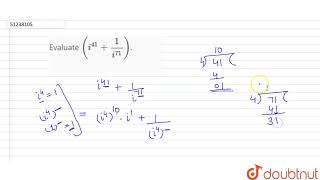 51238105
Evaluate (i^41 + 1/i^71).
i^4 = 1
(i^4)
i^41 + 1/i^71
= (i^4)^10 · i^1 + 1/(i^4)
10
4)41(
4
01
1
4)71(
41
31
doubtnut